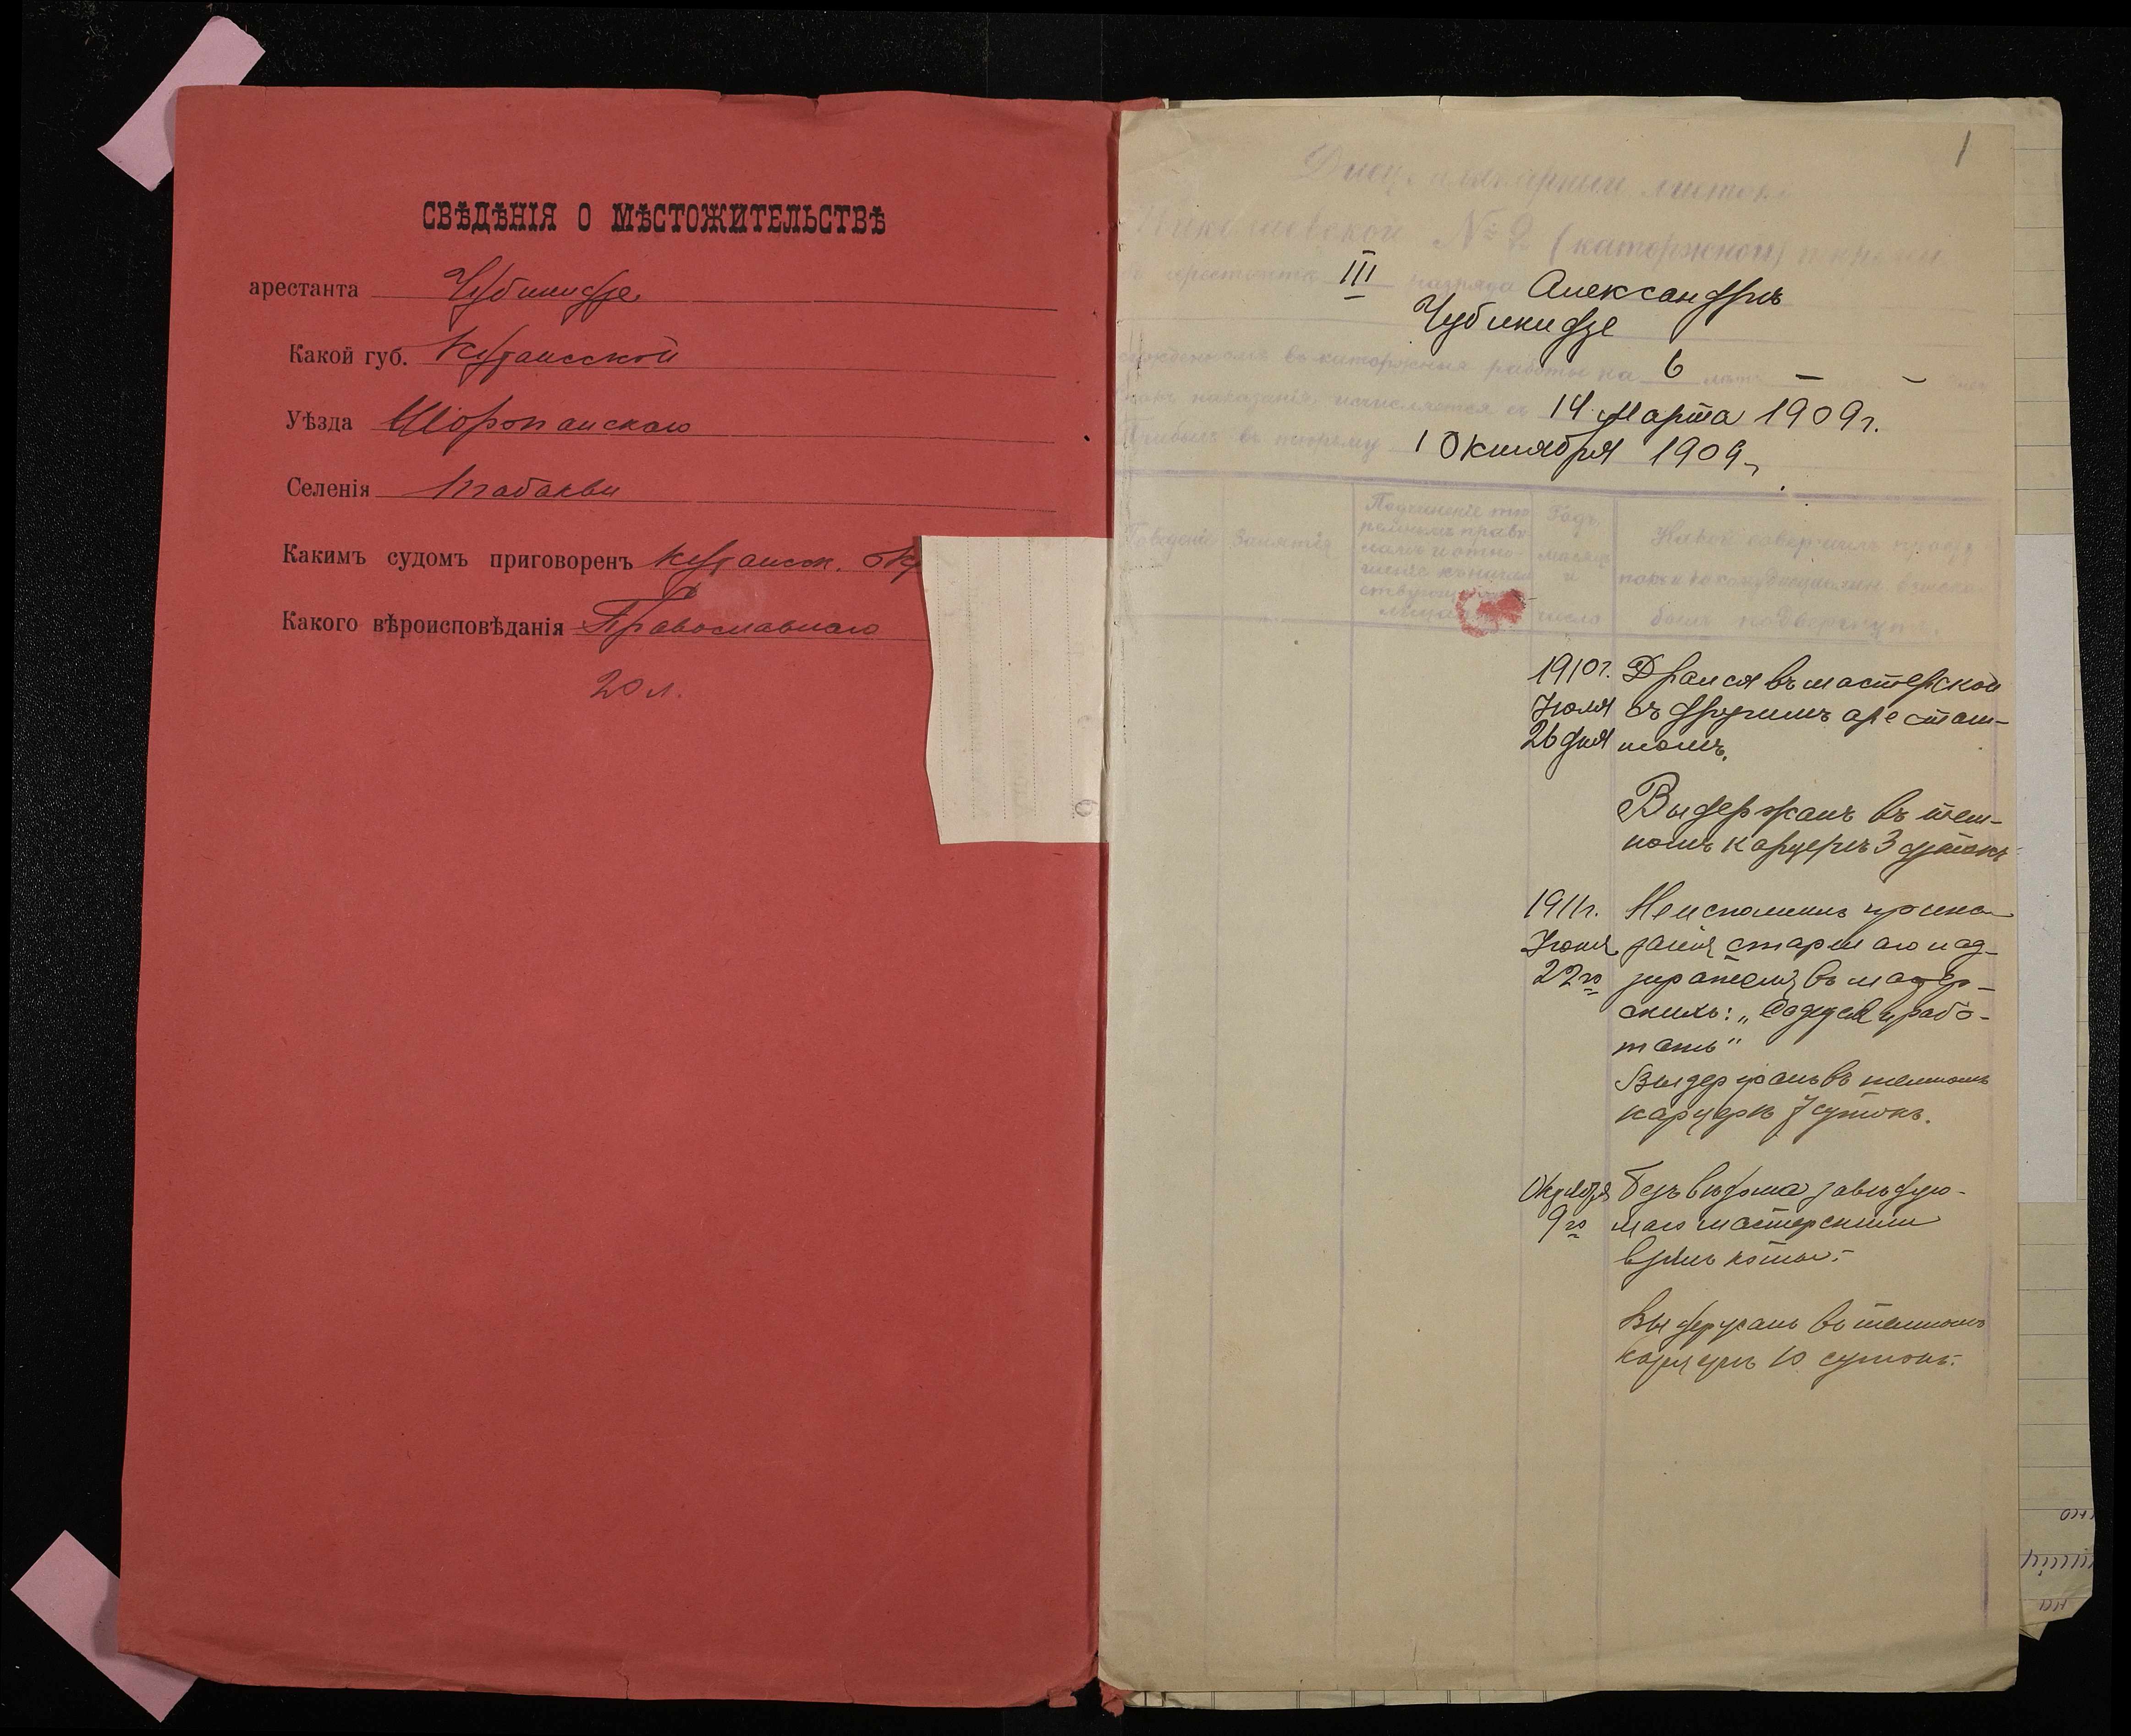 СВѢДѢНІЯ О МѢСТОЖИТЕЛЬСТВѢ
арестанта Чубинидзе
Какой губ. Кутаисской
Уѣзда Шоропанскаго
Селенія Табакви
Какимъ судомъ приговоренъ Кутаиск. Окр
Какого вѣроисповѣданія Православнаго
20 л.
1
Дисциплинарный листокъ
Николаевской № 2 (каторжной) тюрьмы
объ арестантѣ III разряда Александрѣ
Чубинидзе
осужденномъ въ каторжныя работы на 6 лѣтъ — —
Срокъ наказанія исчисляется съ 14 Марта 1909 г.
Прибылъ въ тюрьму 1 Октября 1909 г.
Поведеніе
Занятія
Подчиненіе тю-
ремнымъ прави-
ламъ и отно-
шеніе къ начал
ству
Годъ,
мѣсяцъ
и
число
Какой совершилъ просту-
покъ и какому взыска
былъ подвергнутъ.
1910 г. Дрался въ мастерской
Іюля съ другимъ арестан-
26 дня томъ.
Выдержанъ въ тем-
номъ карцерѣ 3 сутокъ
1911 г. Неисполнилъ прика-
Іюня занія старшаго над-
22го зирателя въ мастер-
скихъ: „Садися работ-
тать"
Выдержанъ въ темномъ
карцерѣ 7 сутокъ.
Октября безъ вѣдома завѣдую-
9го щаго мастерскими
взялъ
Выдержанъ въ темномъ
карцерѣ 10 сутокъ.